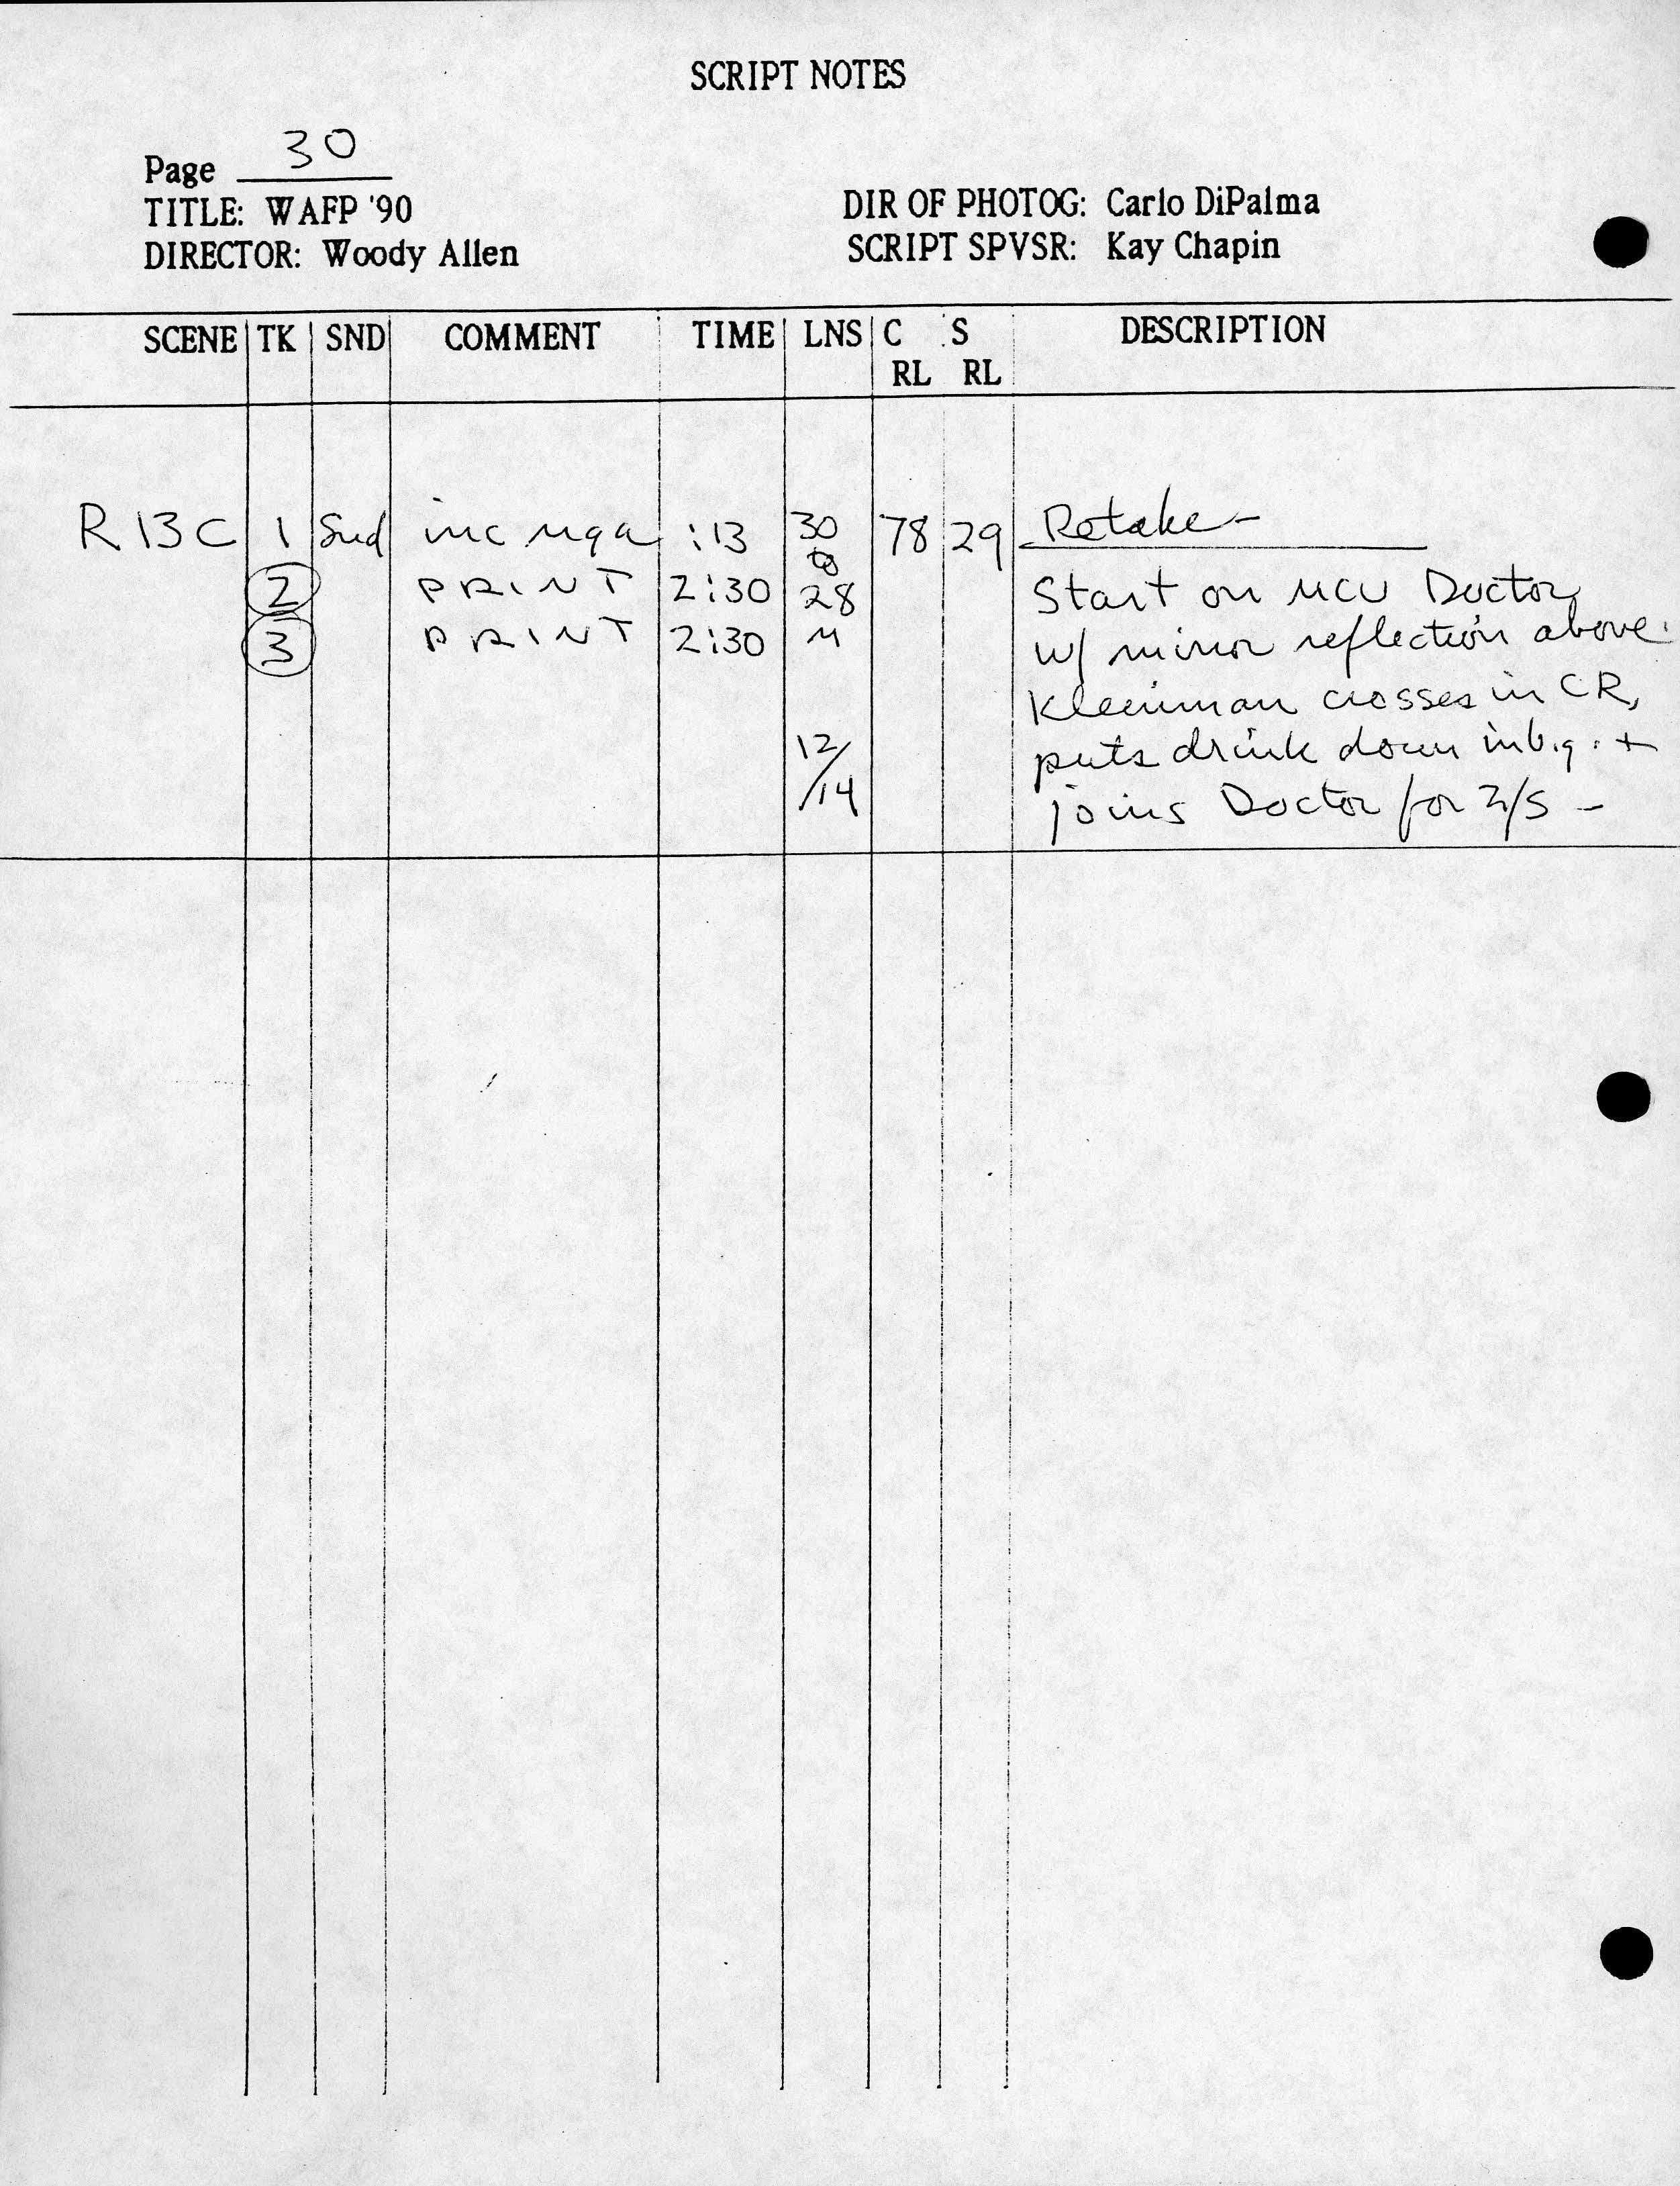 SCRIPT NOTES
Page 30
TITLE: WAFP '90
DIRECTOR: Woody Allen
DIR OF PHOTOG: Carlo DiPalma
SCRIPT SPVSR: Kay Chapin
SCENE TK SND COMMENT TIME LNS C RL S RL DESCRIPTION
R13C 1 Snd inc nga :13 30 78 29 Retake -
to
2 PRINT 2:30 28 Start on MCU Doctor
3 PRINT 2:30 w/ mirror reflection above.
Kleinman crosses in CR,
12/ puts drink down in b.g. +
/14 joins Doctor for 2/S -